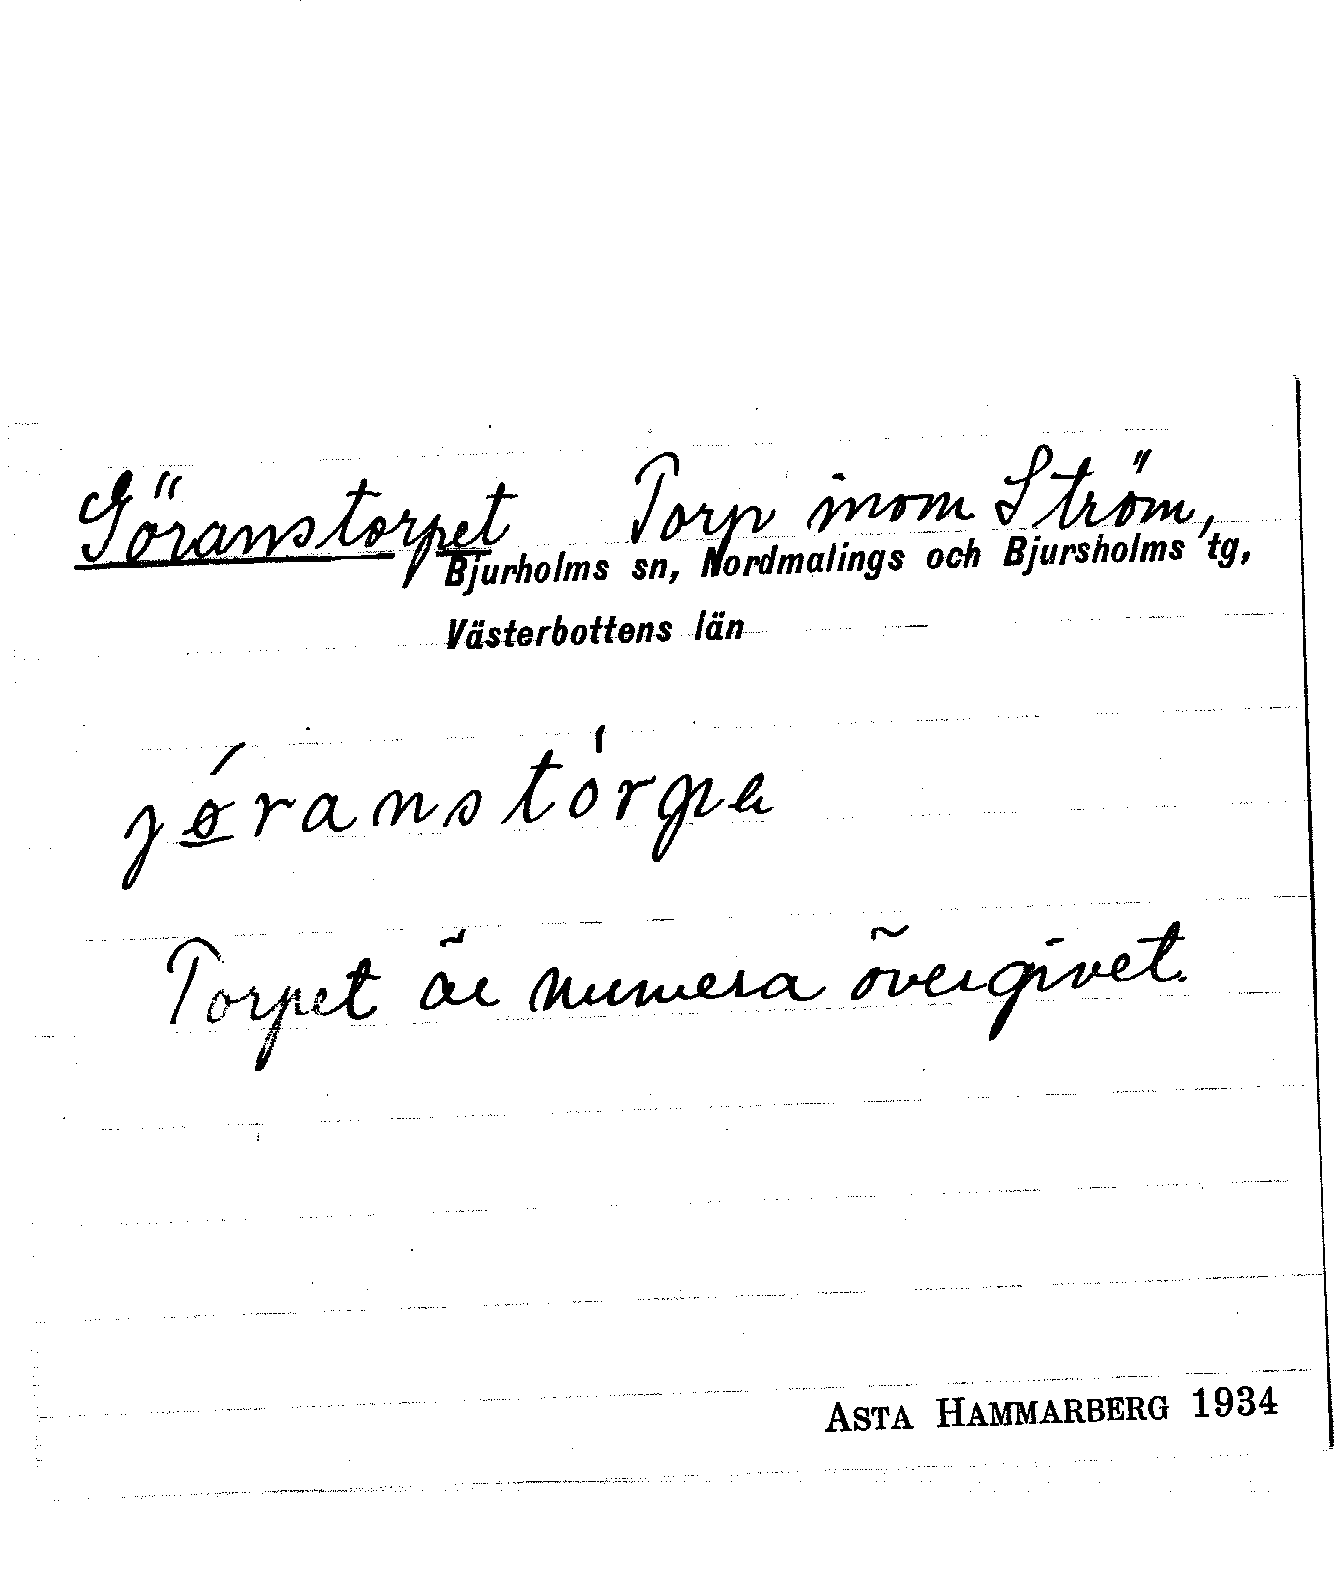 Göranstorpet Torp inom Ström,
Bjurholms sn, Nordmalings och Bjursholms tg,
Västerbottens län
jǿ̲ranstórpa
Torpet är numera övergivet.
ASTA HAMMARBERG 1934